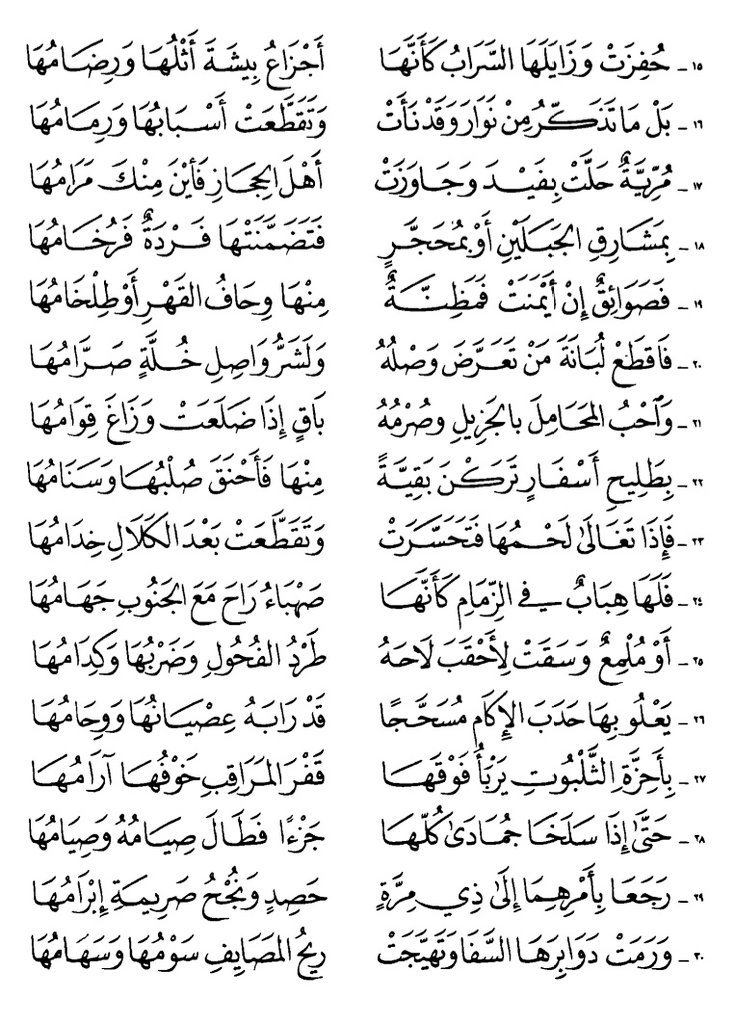 ١٥ - حُفِزَتْ وَزَايَلَهَا السَّرَابُ كَأَنَّهَا أَجْزَاعُ بِيشَةَ أَثْلُهَا وَرِضَامُهَا
١٦ - بَلْ مَا تَذَكَّرُ مِنْ نَوَارَ وَقَدْ نَأَتْ وَتَقَطَّعَتْ أَسْبَابُهَا وَرِمَامُهَا
١٧ - مُرِّيَّةٌ حَلَّتْ بِفَيْدَ وَجَاوَزَتْ أَهْلَ الحِجَازِ فَأَيْنَ مِنْكَ مَرَامُهَا
١٨ - بِمَشَارِقِ الجَبَلَيْنِ أَوْ بِمُحَجَّرٍ فَتَضَمَّنَتْهَا فَرْدَةٌ فَرُخَامُهَا
١٩ - فَصَوَائِقٌ إِنْ أَيْمَنَتْ فَمَظِنَّةٌ مِنْهَا وِحَافُ القَهْرِ أَوْ طِلْخَامُهَا
٢٠ - فَاقْطَعْ لُبَانَةَ مَنْ تَعَرَّضَ وَصْلُهُ وَلَشَرُّ وَاصِلِ خُلَّةٍ صَرَّامُهَا
٢١ - وَٱحْبُ المُحَامِلَ بِالجَزِيلِ وَصُرْمُهُ بَاقٍ إِذَا ضَلَعَتْ وَزَاغَ قِوَامُهَا
٢٢ - بِطَلِيحِ أَسْفَارٍ تَرَكْنَ بَقِيَّةً مِنْهَا فَأَحْنَقَ صُلْبُهَا وَسَنَامُهَا
٢٣ - فَإِذَا تَغَالَى لَحْمُهَا فَتَحَسَّرَتْ وَتَقَطَّعَتْ بَعْدَ الكَلَالِ خِدَامُهَا
٢٤ - فَلَهَا هِبَابٌ فِي الزِّمَامِ كَأَنَّهَا صَهْبَاءُ رَاحَ مَعَ الجَنُوبِ جَهَامُهَا
٢٥ - أَوْ مُلْمِعٌ وَسَقَتْ لِأَحْقَبَ لَاحَهُ طَرْدُ الفُحُولِ وَضَرْبُهَا وَكِدَامُهَا
٢٦ - يَعْلُو بِهَا حَدَبَ الإِكَامِ مُسَحَّجًا قَدْ رَابَهُ عِصْيَانُهَا وَوِحَامُهَا
٢٧ - بِأَحِزَّةِ الثَّلْبُوتِ يَرْبَأُ فَوْقَهَا قَفْرَ المَرَاقِبِ خَوْفُهَا آرَامُهَا
٢٨ - حَتَّى إِذَا سَلَخَا جُمَادَى كُلَّهَا جَزْءًا فَطَالَ صِيَامُهُ وَصِيَامُهَا
٢٩ - رَجَعَا بِأَمْرِهِمَا إِلَى ذِي مِرَّةٍ حَصِدٍ وَنُجْحُ صَرِيمَةٍ إِبْرَامُهَا
٣٠ - وَرَمَتْ دَوَابِرَهَا السَّفَا وَتَهَيَّجَتْ رِيحُ المَصَايِفِ سَوْمُهَا وَسَهَامُهَا